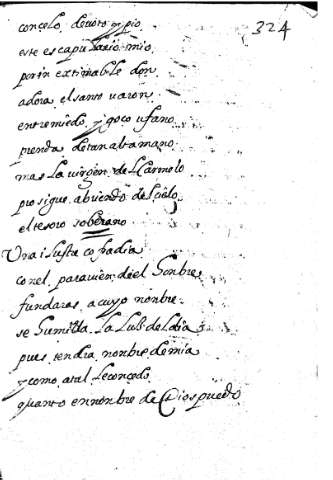 324
con çelo, devoto y pio
este escapulario mio
por in extimable don
adora el santo varon
entremiedo, y goço ufano
prenda de tan alta mano
mas la virgen del Carmelo
prosigue abriendo del cielo
el tesoro soberano
Una ilustre cofradia
con el paravien del Honbre
fundaras a cuyo nonbre
se humilla la luz del dia
pues tendra nonbre de mia
y como a tal le conçedo
quanto en nonbre de Dios puedo